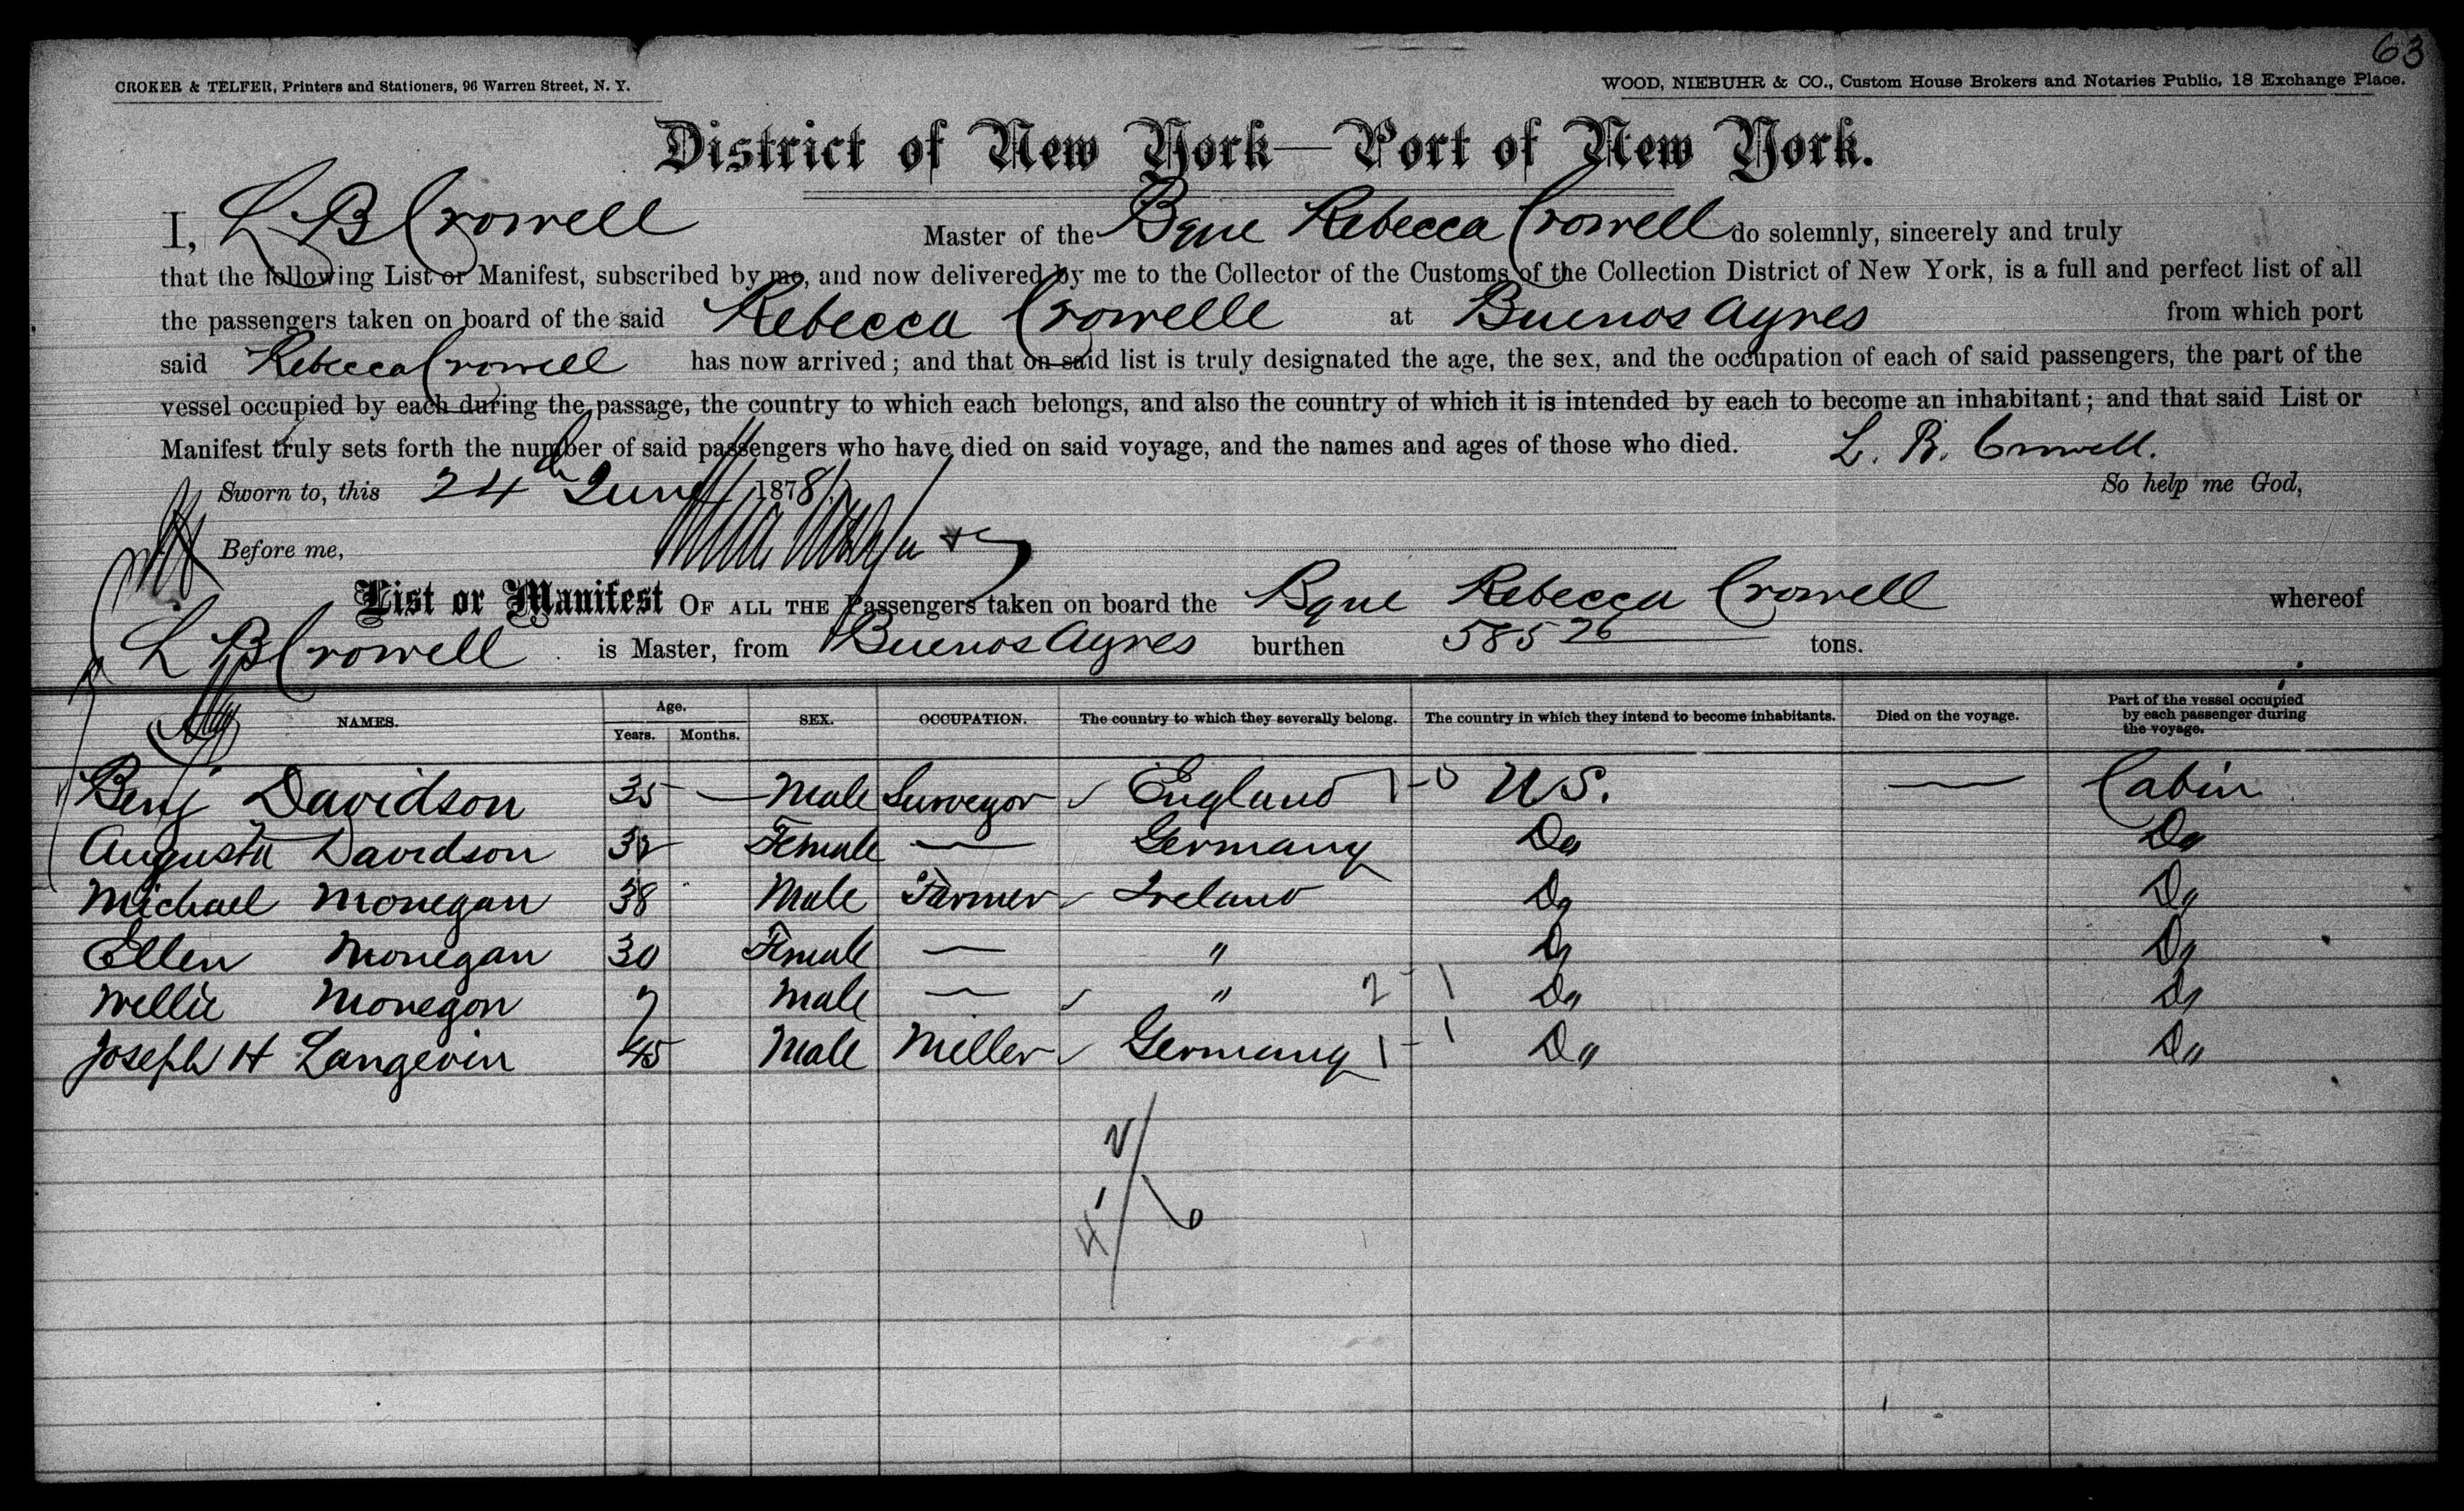 63
CROKER & TELFER, Printers and Stationers, 96 Warren Street, N. Y.
WOOD, NIEBUHR & CO., Custom House Brokers and Notaries Public, 18 Exchange Place.
District of New York—Port of New York.
I, L B Crowell Master of the Bque Rebecca Crowell do solemnly, sincerely and truly
that the following List or Manifest, subscribed by me, and now delivered by me to the Collector of the Customs of the Collection District of New York, is a full and perfect list of all
the passengers taken on board of the said Rebecca Crowelle at Buenos Ayres from which port
said Rebecca Crowell has now arrived; and that on said list is truly designated the age, the sex, and the occupation of each of said passengers, the part of the
vessel occupied by each during the passage, the country to which each belongs, and also the country of which it is intended by each to become an inhabitant; and that said List or
Manifest truly sets forth the number of said passengers who have died on said voyage, and the names and ages of those who died. L. B. Crowell.
Sworn to, this 24th June 1878 So help me God,
Before me,
List or Manifest OF ALL THE Passengers taken on board the Bque Rebecca Crowell whereof
L B Crowell is Master, from Buenos Ayres burthen 585 26 tons.
NAMES. Age. Years. Months. SEX. OCCUPATION. The country to which they severally belong. The country in which they intend to become inhabitants. Died on the voyage. Part of the vessel occupied by each passenger during the voyage.
Benj Davidson 35 — Male Surveyor England 1-0 U S. — Cabin
Augusta Davidson Female — Germany Do Do
Michael Monegan 38 Male Farmer Ireland Do Do
Ellen Monegan 30 Female — " Do Do
Wellie Monegon 7 Male — " 2-1 Do Do
Joseph H Langevin 45 Male Miller Germany 1-1 Do Do
6